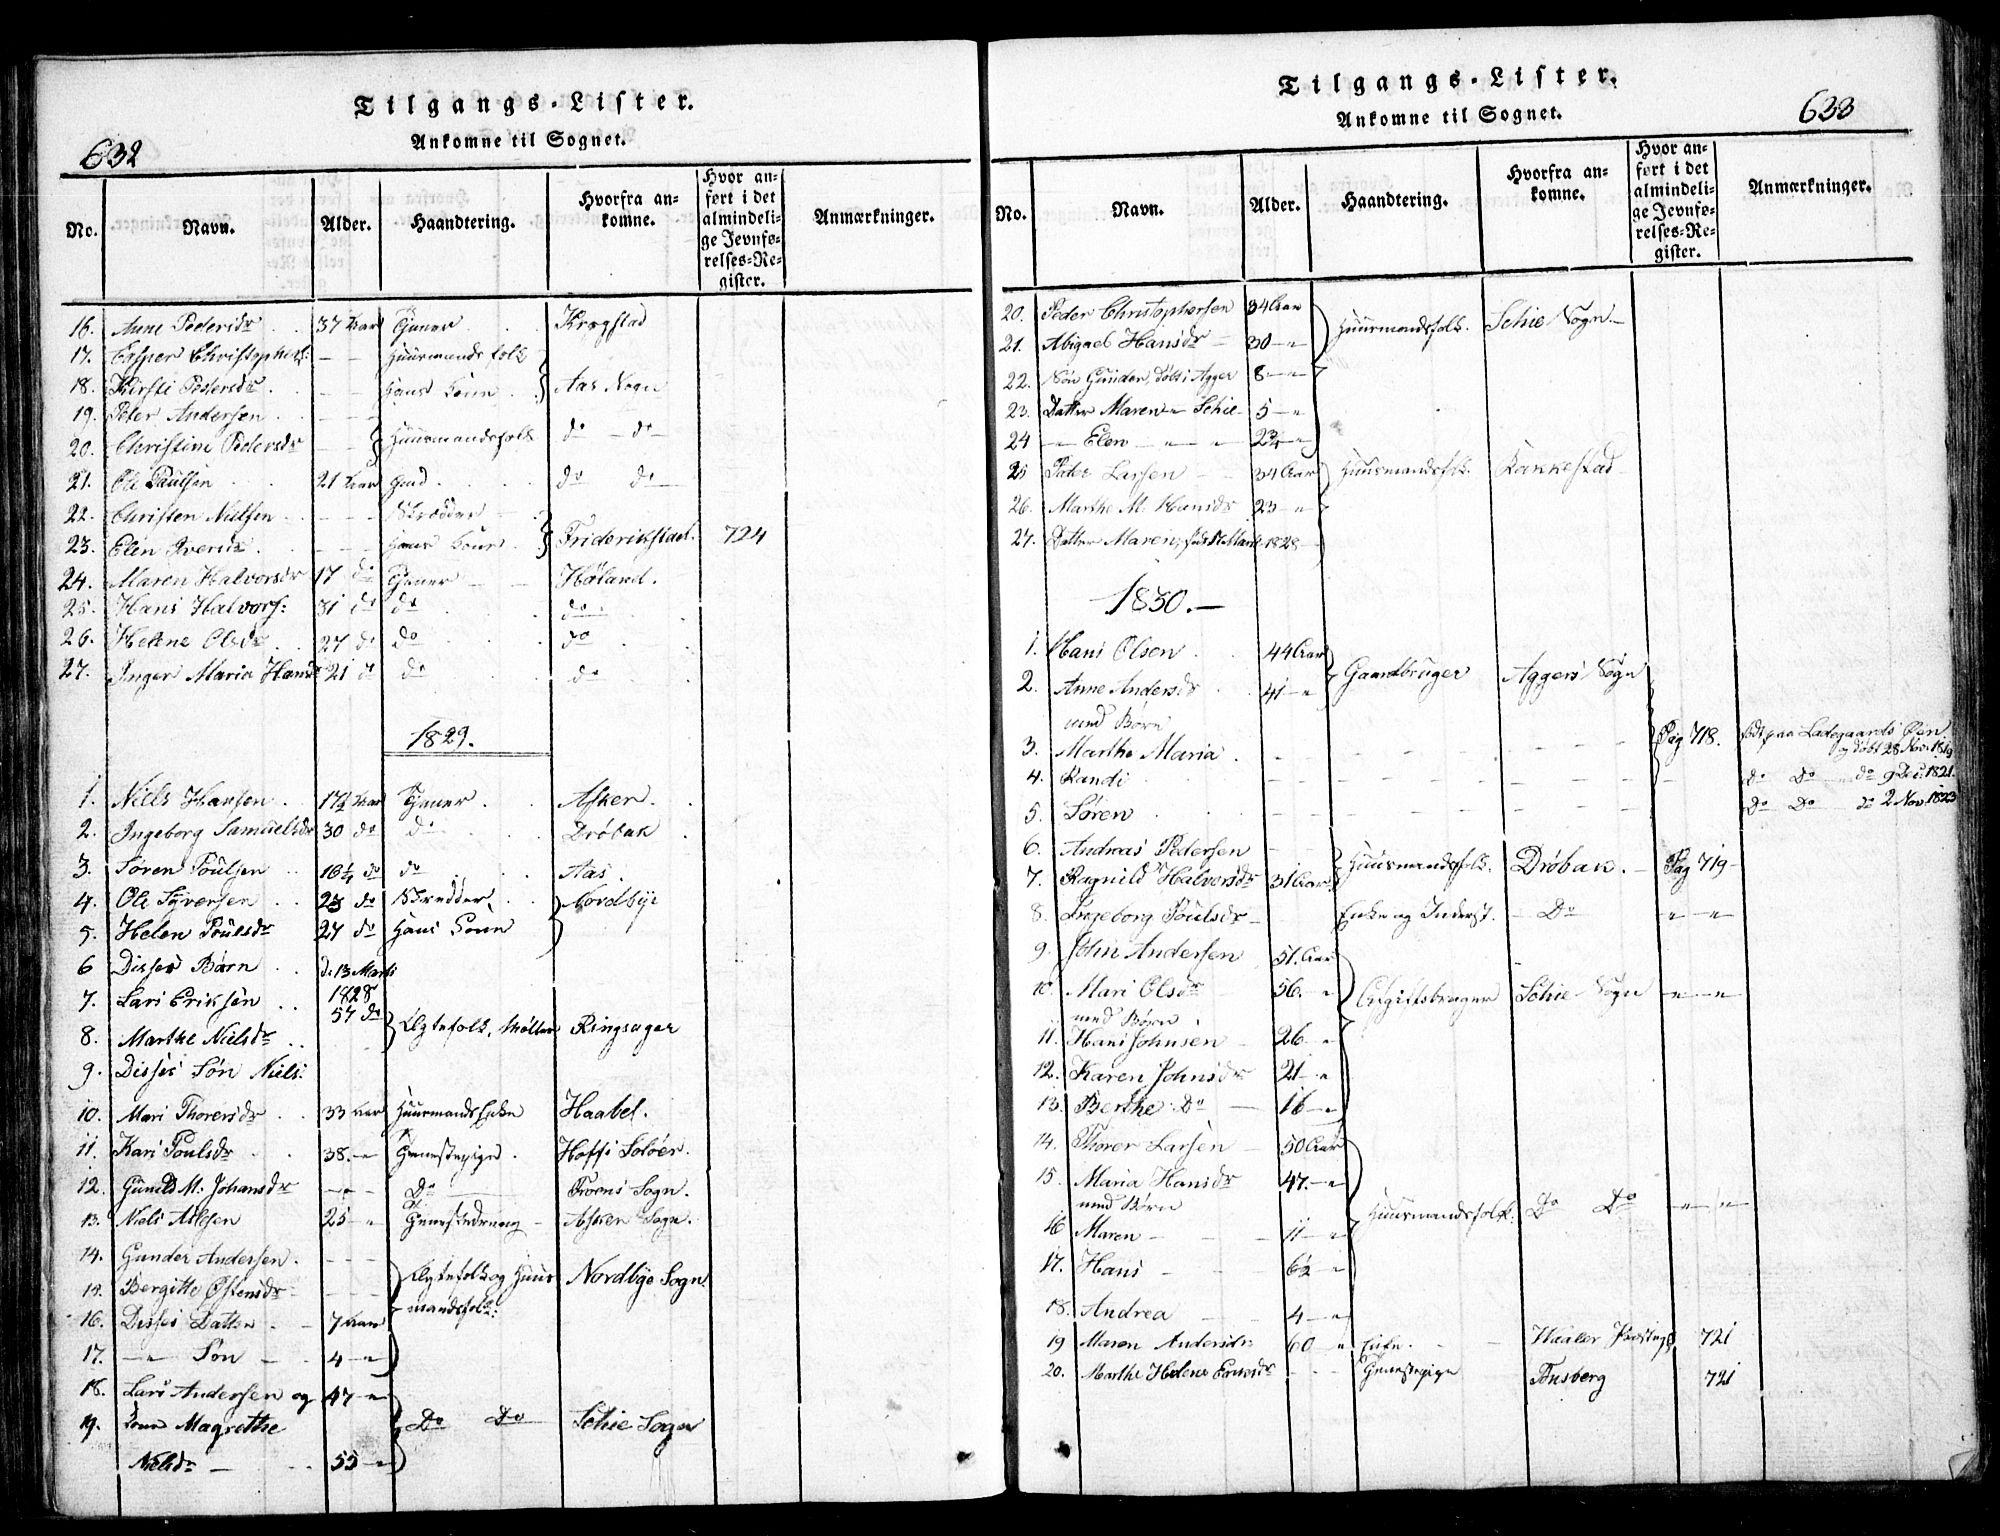 Tilgangs-Lister.
Ankomne til Sognet.
632
No.
Navn.
Alder.
Haandtering.
Hvorfra an-
komne.
Hvor an-
ført i det
almindeli-
ge Jevnfø-
relses-Re-
gister.
Anmærkninger.
16. Anne Pedersdr 37 Aar Tjener Krogstad
17. Casper Christophers: - - Huusmandsfolk
18. Kirsti Pedersdr. - - hans Kone Aas Sogn
19. Peter Andersen - - -
20. Christine Pedersdr - - Huusmandsfolk do - do
21. Ole Paulsen 21 Aar do do
22. Christen Nielsen - - - Skrædder
23. Elen Iversdr. - - - hans Kone Friderikstad. 724
24. Maren Halvorsdr 17 do Tjener Høland.
25. Hans Halvors: 31 do do do
26. Helene Olsdr 27 do do do
27. Inger Maria Hansdr 21 do do do
1829.
1. Niels Hansen 17½ Aar Tjener Asker.
2. Ingeborg Samuelsdr 30 do do Drøbak
3. Søren Poulsen 16¼ do do Aas.
4. Ole Syversen 23 do Skrædder Nordbye
5. Helen Poulsdr 27 do Hans Kone
6 Disses Børn d. 13 Marti
7. Lars Eriksen 1828
57 do
8. Marthe Nielsdr Ægtefolk, Møller Ringsager
9. Disses Søn Niels.
10. Mari Thorersdr 33 Aar Huusmands Enke Haabel.
11. Kari Poulsdr 38. - " Tjenestepige. Hoff i Soløer.
12. Gunild M. Johansdr - - - Do Froens Sogn.
13. Niels Atlesen 25 - " Tjenestedreng - Asker Sogn.
14. Gunder Andersen. - - -
15. Bergitte Østensdr - - - Ægtefolk og Huus Nordbye Sogn.
16. Disses Datter 7 Aar mandsfolk:
17. - " - Søn - 4 - "
18. Lars Andersen og 47 - "
19. Kone Magrethe Do Do Schie Sogn
Nielsdr - 55 - "
Tilgangs-Lister.
Ankomne til Sognet.
633
No.
Navn.
Alder.
Haandtering.
Hvorfra an-
komne.
Hvor an-
ført i det
almindeli-
ge Jevnfø-
relses-Re-
gister.
Anmærkninger.
20. Peder Christophersen 34 Aar Huusmandsfolk. Schie Sogn -
21. Abigael Hansdr - 30 - "
22. Søn Gunder, døbt i Agger 8 - "
23. Datter Maren - " Schie - 5 - "
24 - " - Elen - " - " 2¾ - "
25 Peder Larsen - 34 Aar Huusmandsfolk. Rakkestad
26. Marthe M. Hansdr 23 - "
27. Datter Maren, 1828 -
1830. -
1. Hans Olsen 44 Aar Gaardbruger Aggers Sogn
2. Anne Andersdr 41 - "
med Børn
3. Marthe Maria Pag 718. født paa Ladegaards Øen
og døbt 28 Nov. 1819
4. Randi do Do do 9 Dec. 1821.
5. Søren Do Do do 2 Nov. 1823
6. Andreas Pedersen Huusmandsfolk. Drøbak. - Pag 719 -
7. Ragnild Halvorsdr 31 Aar
8. Ingeborg Poulsdr - Enke og Inderst. - Do " - "
9. John Andersen 51. Aar
10. Mari Olsdr 56. - " Afgiftsbruger Schie - Sogn " - "
med Børn
11. Hans Johnsen - 26 - "
12. Karen Johnsdr 21 - "
13. Berthe Do - 16 - "
14. Thorer Larsen - 50 Aar
15. Maria Hansdr 47. - "
med Børn Huusmandsfolk. Do Do " - "
16 Maren - 11 - "
17. Hans - 6½ - "
18. Andrea 4 - "
19 Maren Andersdr: 60 - " Enke. - Haaler Præsteg. 721
20. Marthe Helene Ericsdr - - - Tjenestepige Tønsberg 721